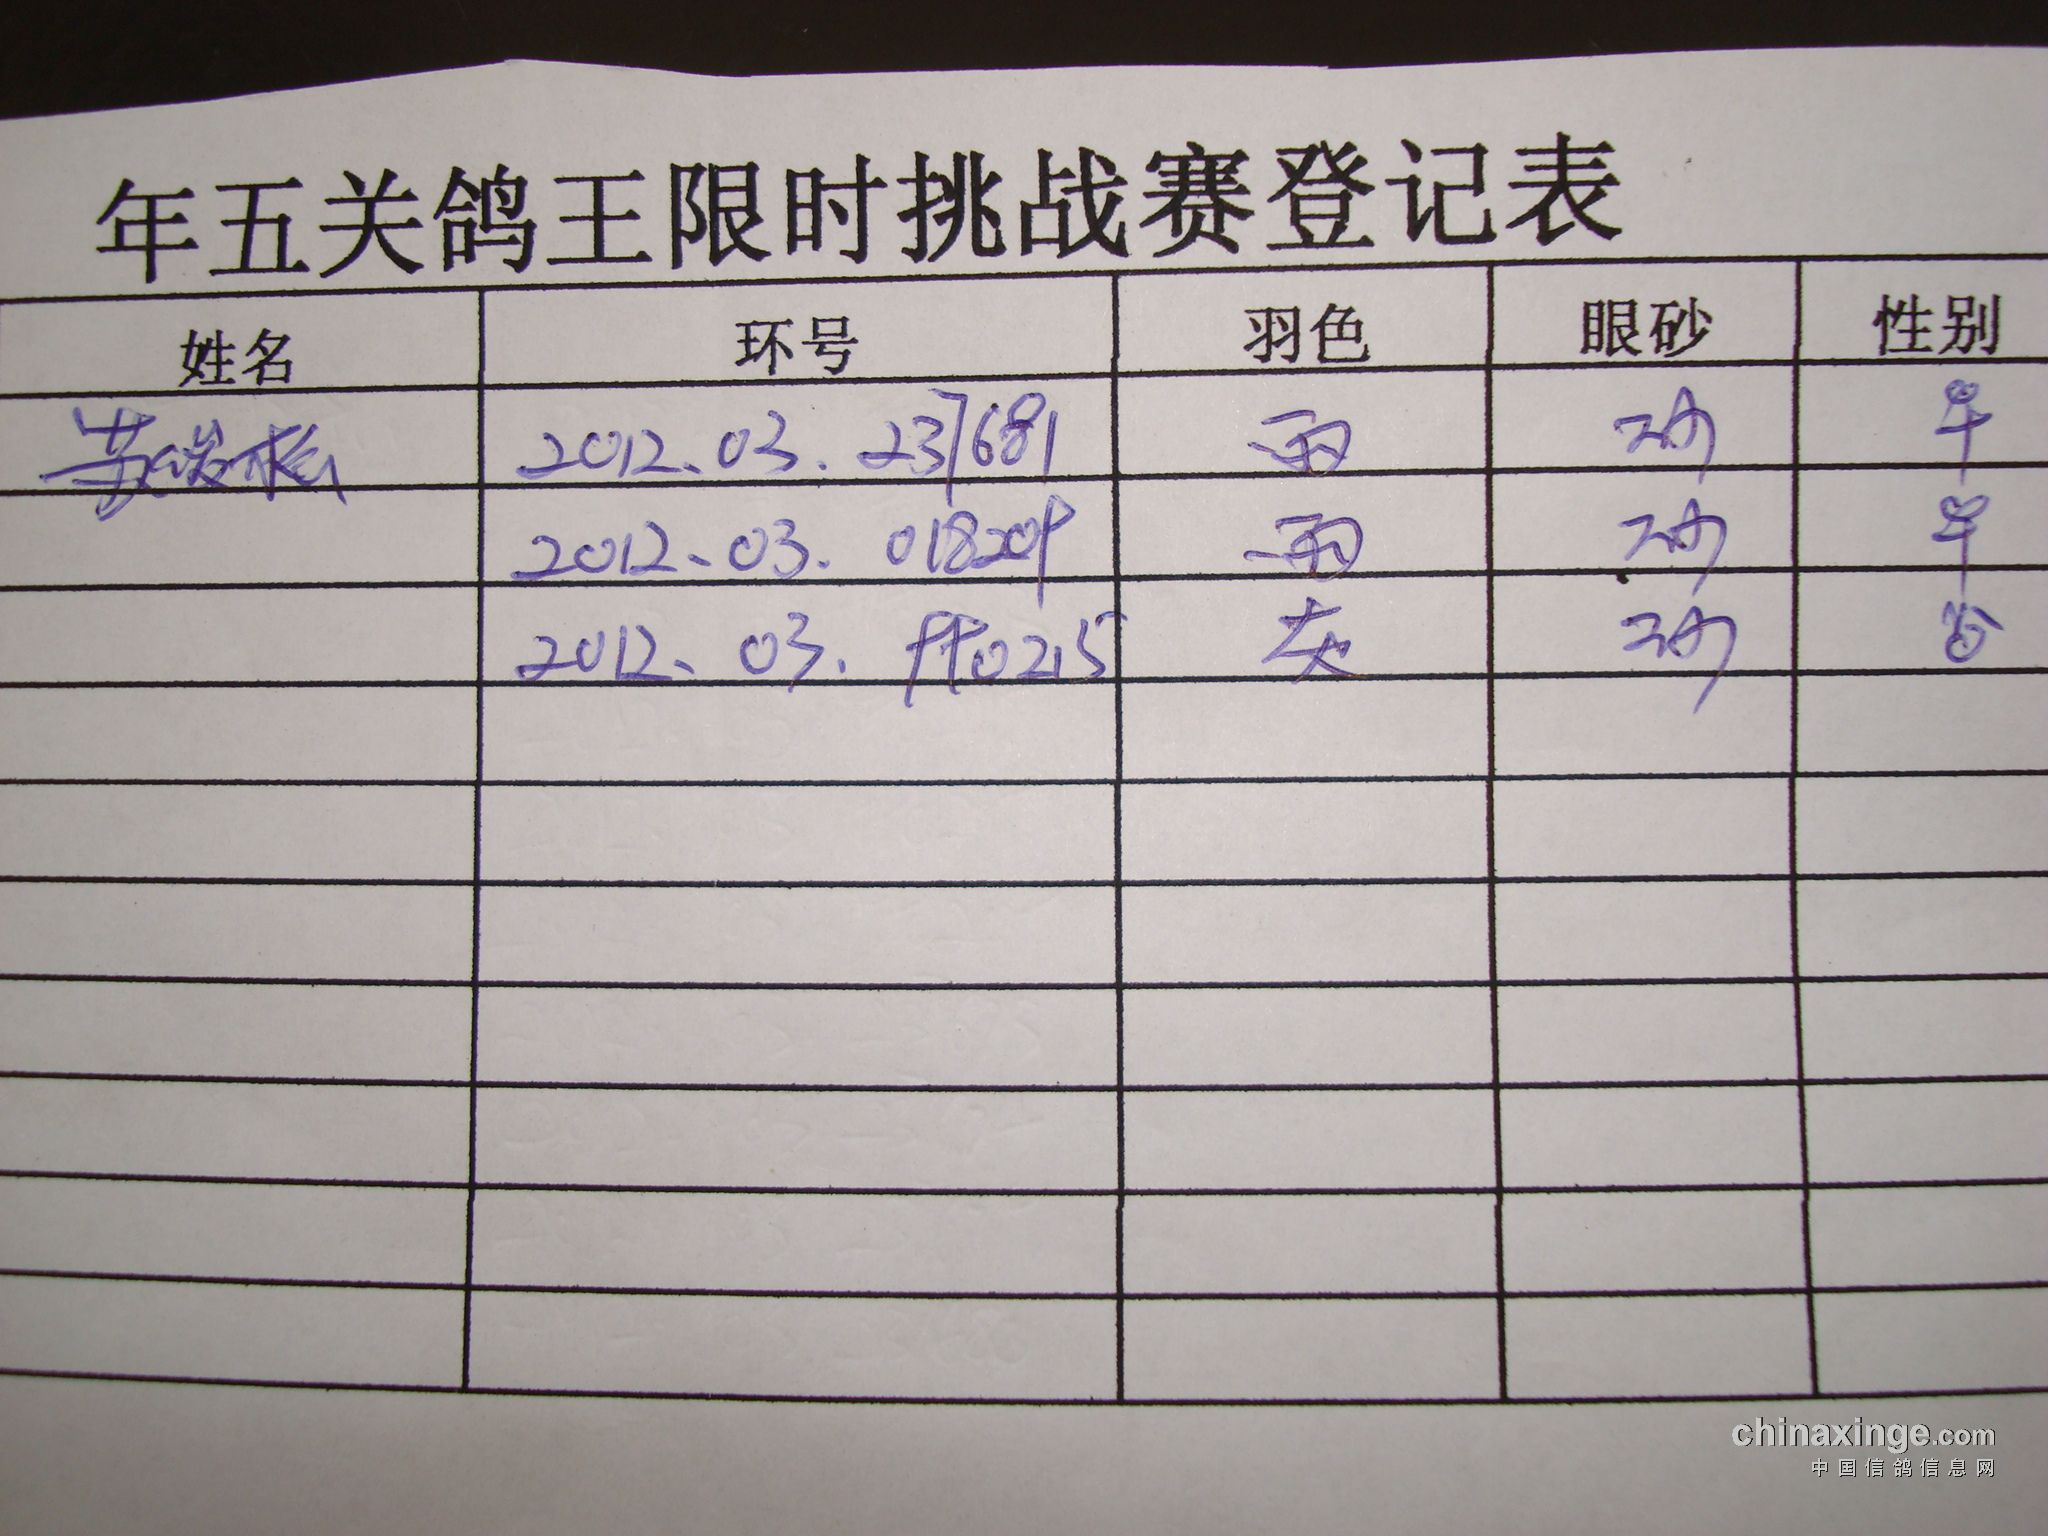 年五关鸽王限时挑战赛登记表
姓名 环号 羽色 眼砂 性别
苏 2012.03.237681 雨 砂 ♀
2012.03.018209 雨 砂 ♀
2012.03. 0215 灰 砂
chinaxinge.com
中国信鸽信息网